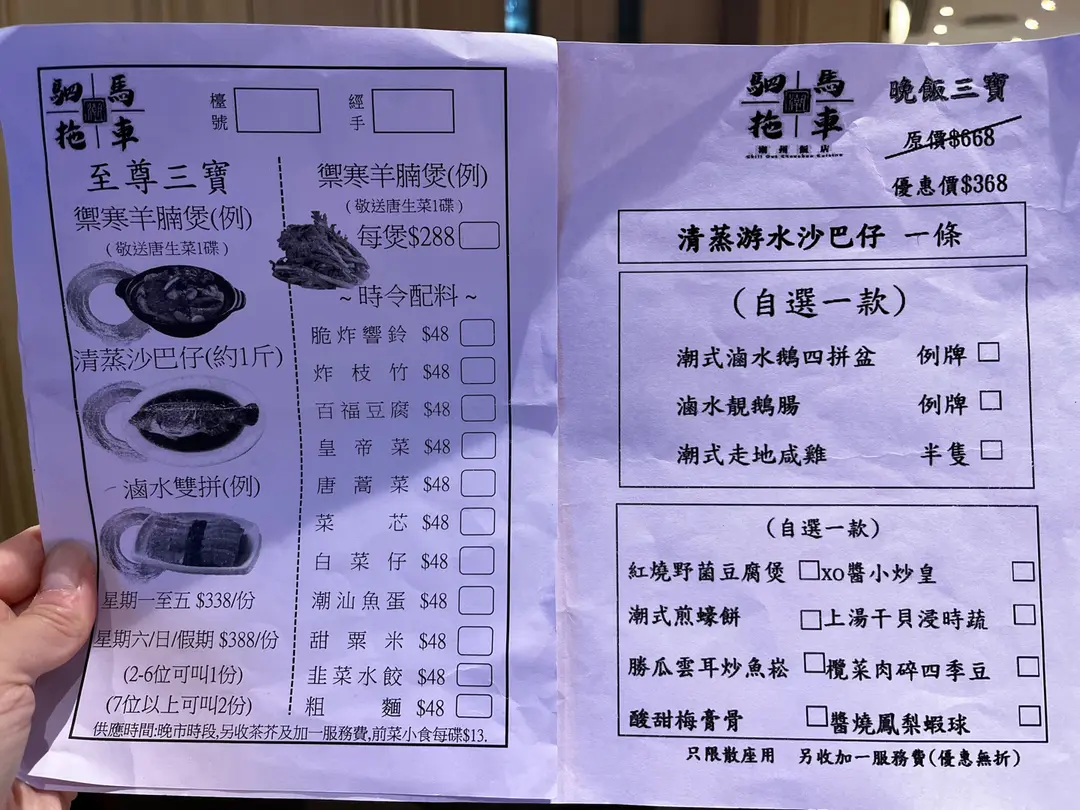 駟馬拖車
檯號
經手
至尊三寶
禦寒羊腩煲(例)
(敬送唐生菜1碟)
清蒸沙巴仔(約1斤)
滷水雙拼(例)
星期一至五 $338/份
星期六/日/假期 $388/份
(2-6位可叫1份)
(7位以上可叫2份)
禦寒羊腩煲(例)
(敬送唐生菜1碟)
每煲$288
~時令配料~
脆炸響鈴 $48
炸枝竹 $48
百福豆腐 $48
皇帝菜 $48
唐蒿菜 $48
菜芯 $48
白菜仔 $48
潮汕魚蛋 $48
甜粟米 $48
韭菜水餃 $48
粗麵 $48
供應時間:晚市時段,另收茶芥及加一服務費,前菜小食每碟$13.
駟馬拖車
潮州飯店
Chill Out Chaozhou Cuisine
晚飯三寶
原價$668
優惠價$368
清蒸游水沙巴仔 一條
(自選一款)
潮式滷水鵝四拼盆 例牌
滷水靚鵝腸 例牌
潮式走地咸雞 半隻
(自選一款)
紅燒野菌豆腐煲 xo醬小炒皇
潮式煎蠔餅 上湯干貝浸時蔬
勝瓜雲耳炒魚崧 欖菜肉碎四季豆
酸甜梅膏骨 醬燒鳳梨蝦球
只限散座用 另收加一服務費(優惠無折)